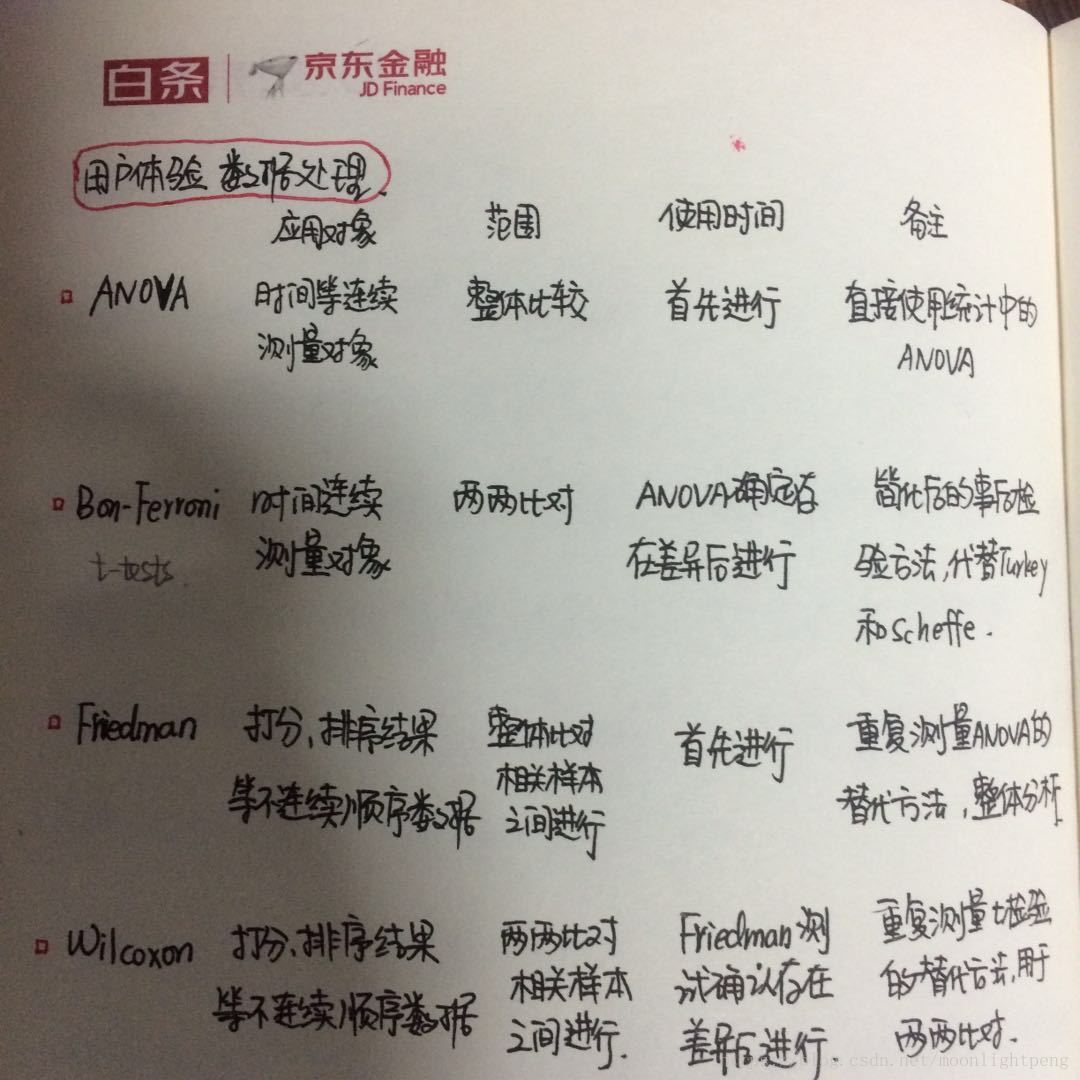 白条 京东金融
JD Finance
用户体验 数据处理.
应用对象 范围 使用时间 备注
ANOVA 时间等连续 整体比较 首先进行 直接使用统计中的
测量对象 ANOVA
Bon-Ferroni 时间连续 两两比对 ANOVA确定存 替代后的事后检
t-tests. 测量对象 在差异后进行 验方法,代替Turkey
和scheffe.
Friedman 打分、排序结果 整体比对 首先进行 重复测量ANOVA的
等不连续顺序数据 相关样本 替代方法,整体分析
之间进行
Wilcoxon 打分、排序结果 两两比对 Friedman测 重复测量t检验
等不连续顺序数据 相关样本 试确认存在 的替代方法,用于
之间进行. 差异后进行. 两两比对.
blog.csdn.net/moonlightpeng